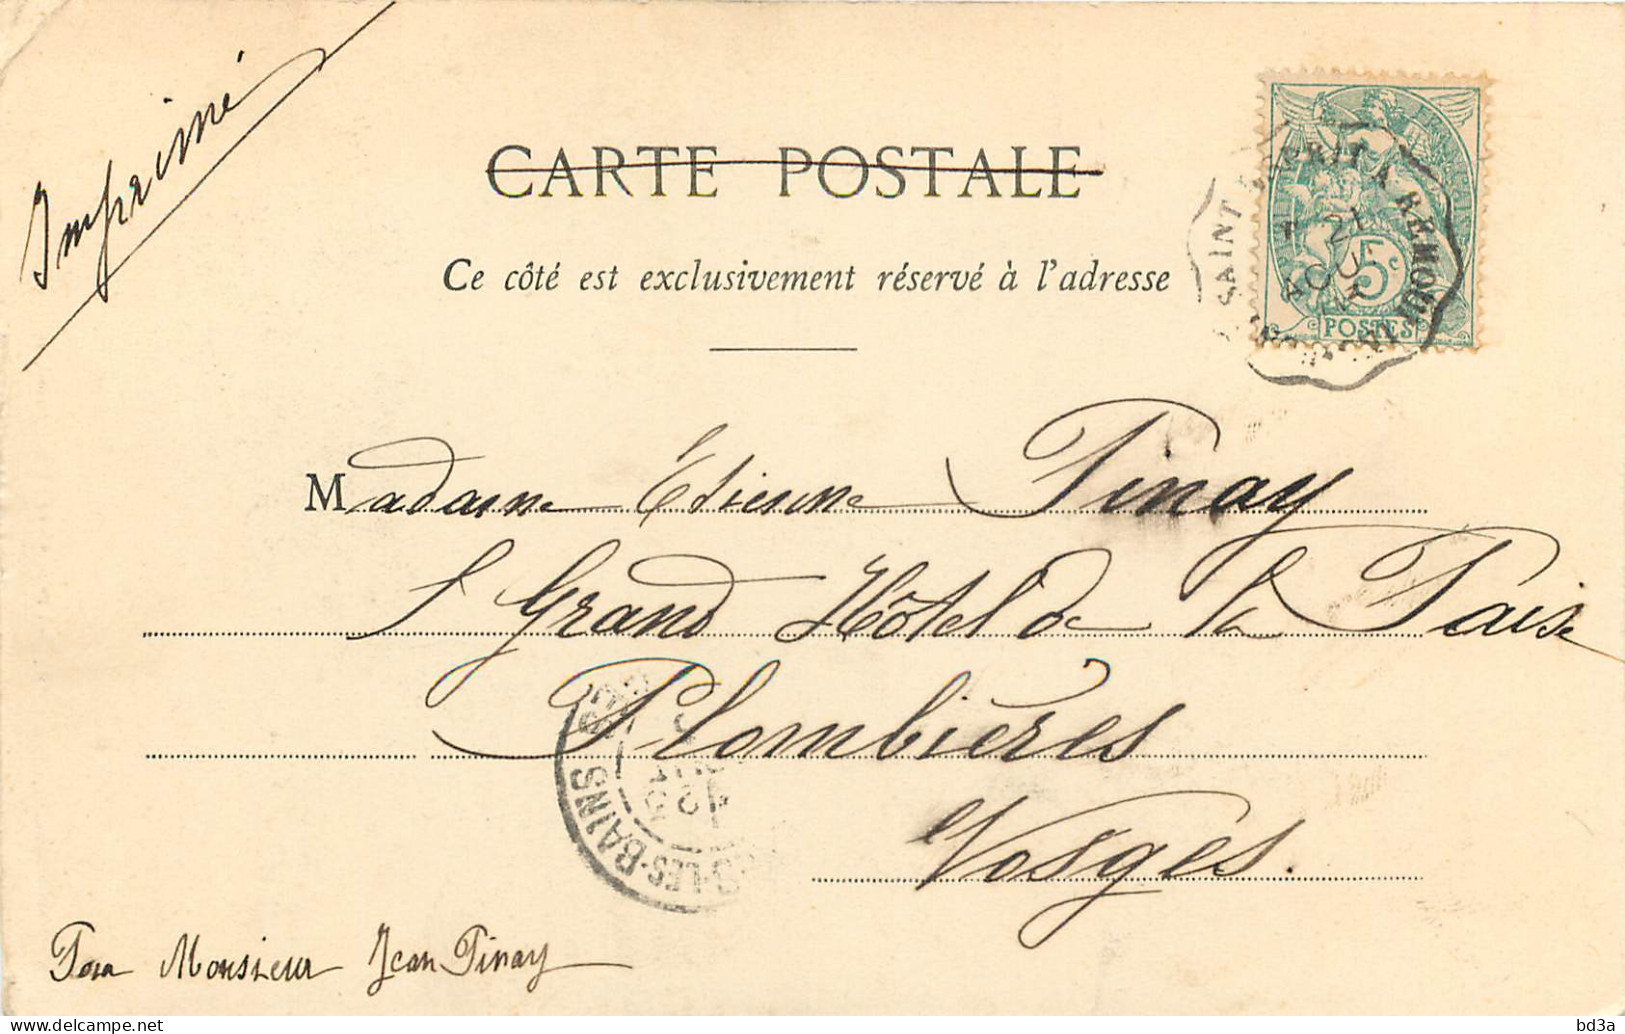 Imprimé
CARTE POSTALE
Ce côté est exclusivement réservé à l'adresse
SAINT ESPRIT A REMOULINS
21
AOU
5c
POSTES
Madame Étienne Pinay
Grand Hôtel de la Paix
Plombières
Vosges.
LES-BAINS
Pour Monsieur Jean Pinay
bd3a